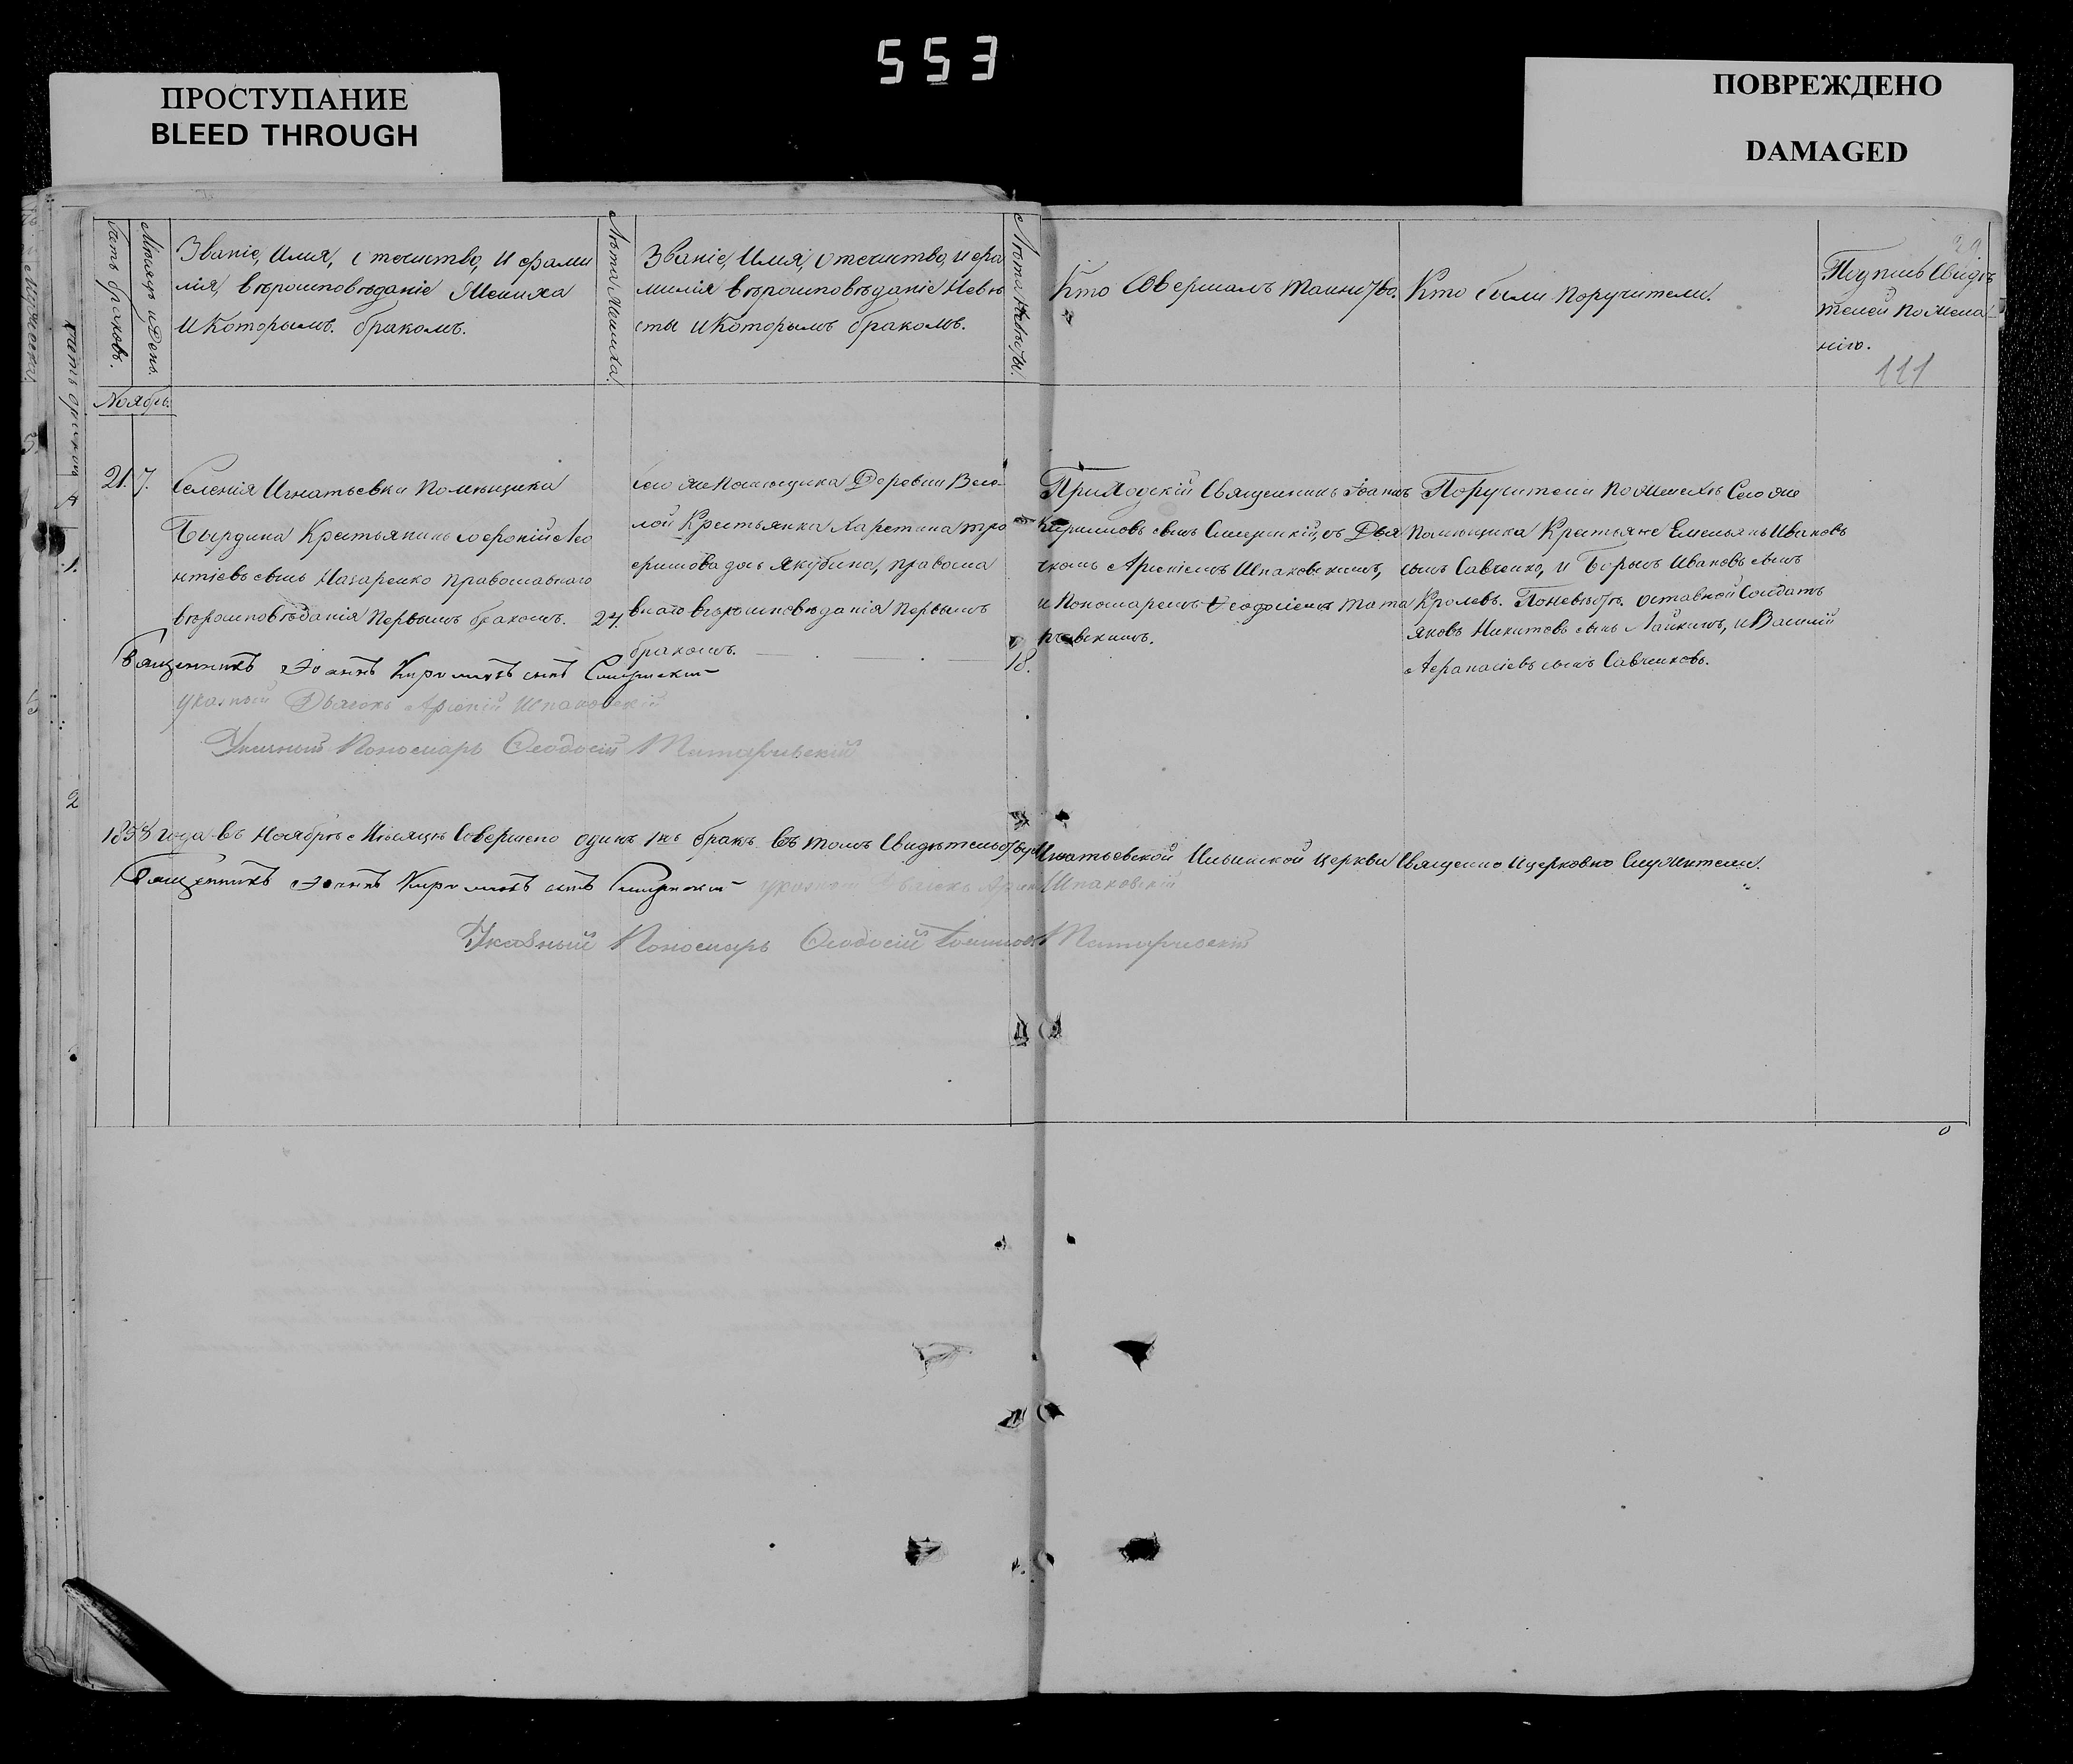 553
ПРОСТУПАНИЕ
BLEED THROUGH
ПОВРЕЖДЕНО
DAMAGED
Счетъ браковъ.
Мѣсяцъ и День.
Званіе, Имя, отечество, и фами
лія, вѣроисповѣданіе Жениха
и Которымъ бракомъ.
Лѣта Жениха
Званіе, Имя, отечество, и фа
милія вѣроисповѣданіе Невѣ
сты и Которымъ бракомъ.
Лѣта Невѣсты.
Кто Совершалъ Таинство.
Кто были Поручители.
Подпись Свидѣ
телей по Жела
нію.
111
Ноябрь
21. 7.
Селенія Игнатьевки Помѣщика
Крестьянинъ
Назаренко Православнаго
вѣроисповѣданія Первымъ бракомъ.
24
сего же Помѣщика Деревни Весе
лой Крестьянка Харетина тро
фимова дочь Якубина, Правосла
внаго вѣроисповѣданія Первымъ
бракомъ.
18.
Приходскій Священникъ Іоаннъ
Кириловъ сынъ съ Дья
комъ Арсеніемъ Шпаковскимъ,
и Пономаремъ Феодосіемъ Тата
Поручители по Женихѣ Сего же
Помѣщика Крестьяне Емельянъ Ивановъ
сынъ Савченко, и Борисъ Ивановъ сынъ
Кролевъ. По невѣстѣ отставной Солдатъ
Яковъ Никитовъ сынъ и Василій
Афанасіевъ сынъ Савченковъ.
Священникъ Іоаннъ Кириловъ сынъ
указный Дьячекъ Арсеній Шпаковскій
Указный Пономарь Феодосій
1858 года въ Ноябрѣ Мѣсяцѣ Совершено одинъ бракъ въ томъ Свидѣтельствуемъ Игнатьевской Ильинской церкви Священно и церковно Служители.
Священникъ Іоаннъ Кириловъ сынъ указный Дьячекъ Арсеній Шпаковскій
Указный Пономарь Феодосій